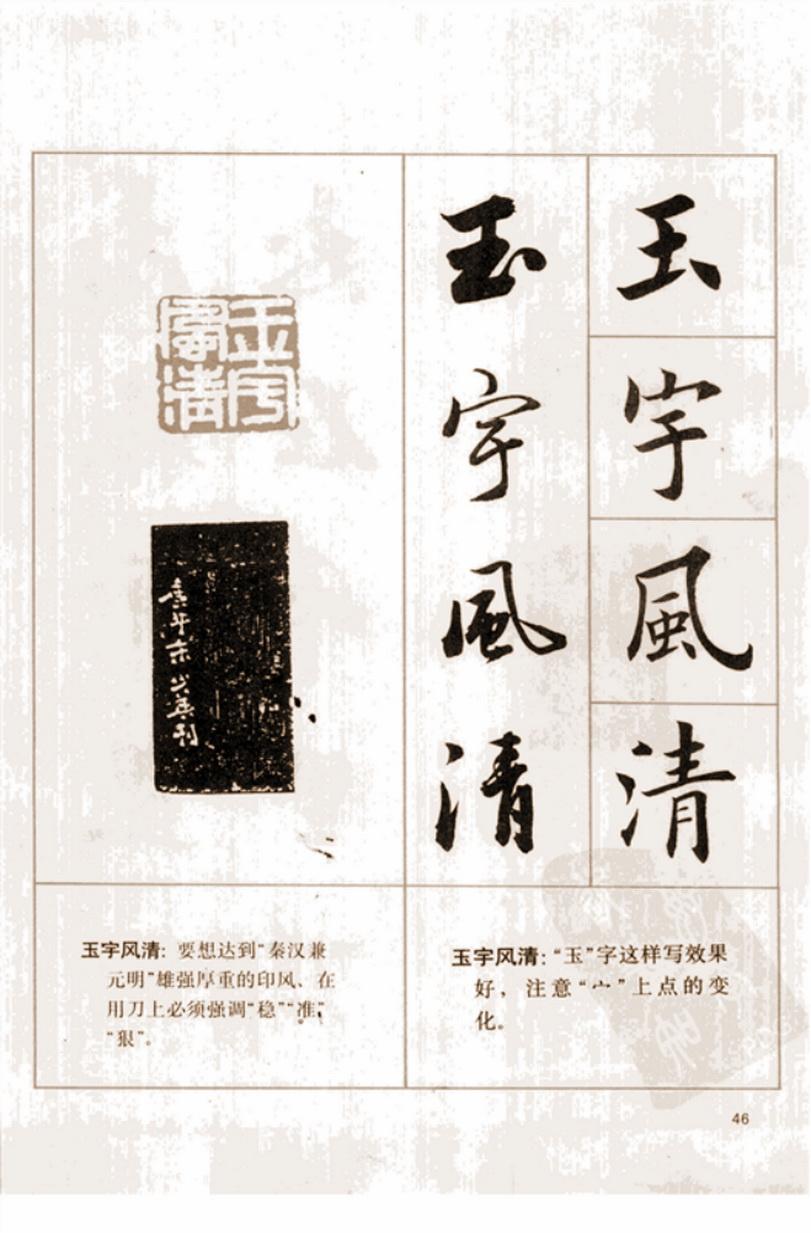 玉
宇
風
清
玉宇風清
玉宇風清
玉字风清：要想达到“秦汉兼
元明”雄强厚重的印风、在
用刀上必须强调“稳”“准”
“狠”。
玉宇风清：“玉”字这样写效果
好，注意“宀”上点的变
化。
46